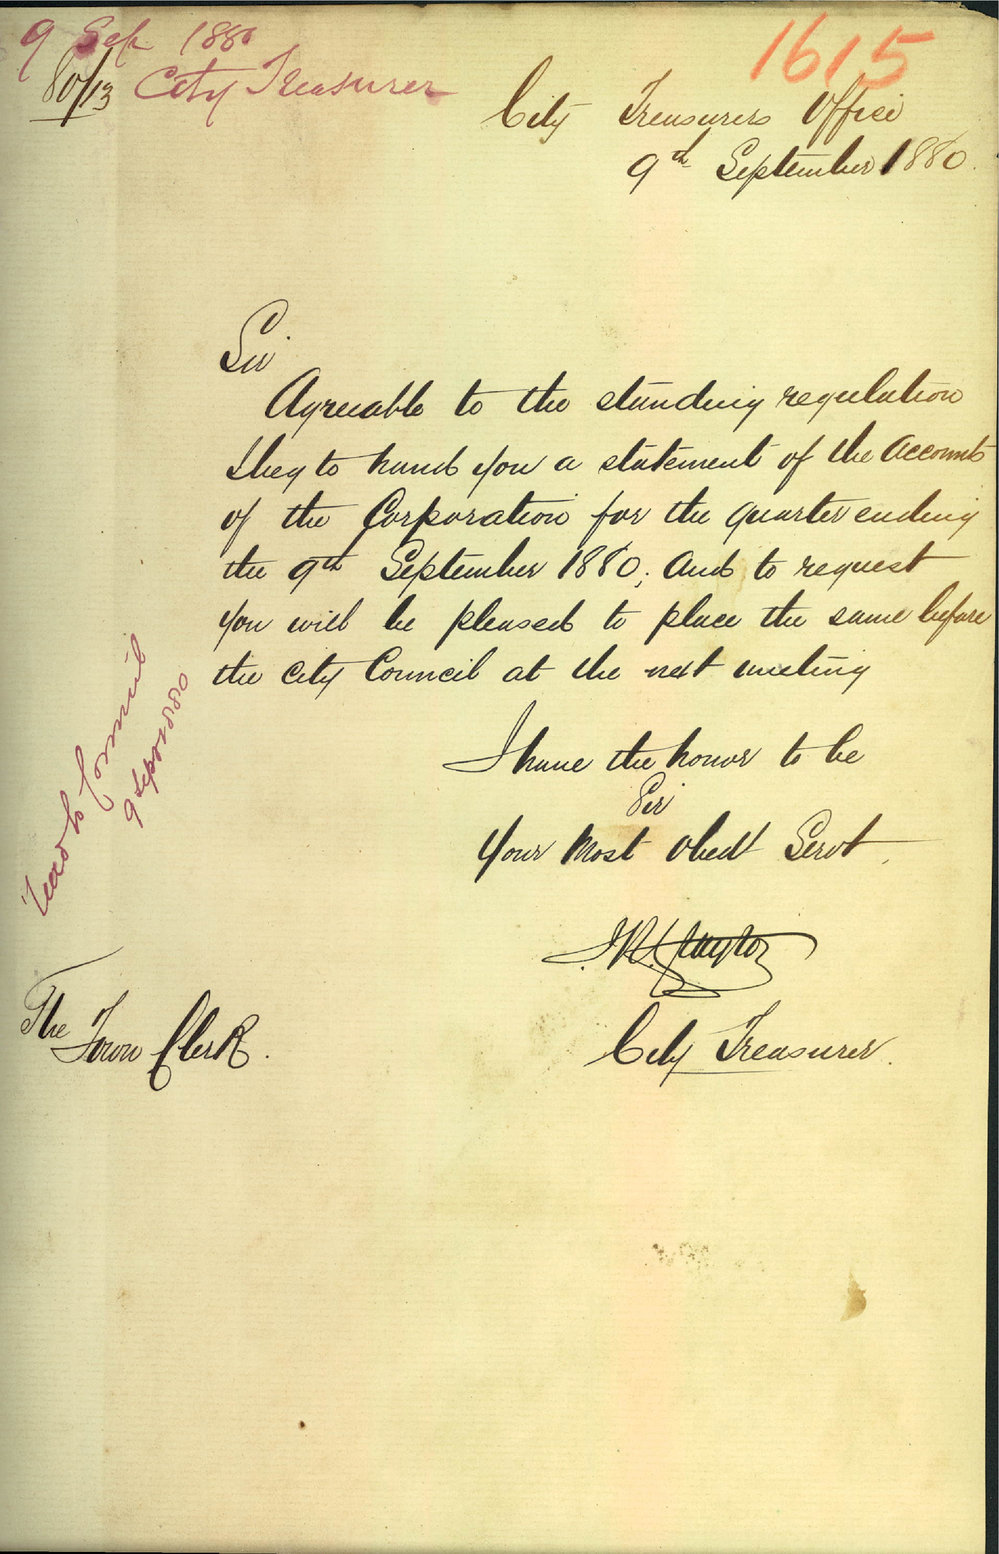 9 Sep 1880
80/13 City Treasurer
1615
City Treasurers Office
9th September 1880.
Sir
Agreeable to the standing regulation
I beg to hand you a statement of the Accounts
of the Corporation for the quarter ending
the 9th September 1880; And to request
you will be pleased to place the same before
the City Council at the next meeting
I have the honor to be
Sir
Your Most Obedt Servt.
City Treasurer.
The
Town Clerk.
Read to Council
9 Sept 1880